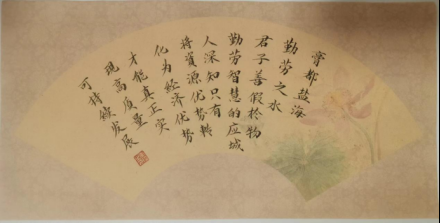 膏都盐海
勤劳之水
君子善假於物
勤劳智慧的应城
人深知只有
将资源优势转
化为经济优势
才能真正实
现高质量
可持续发展